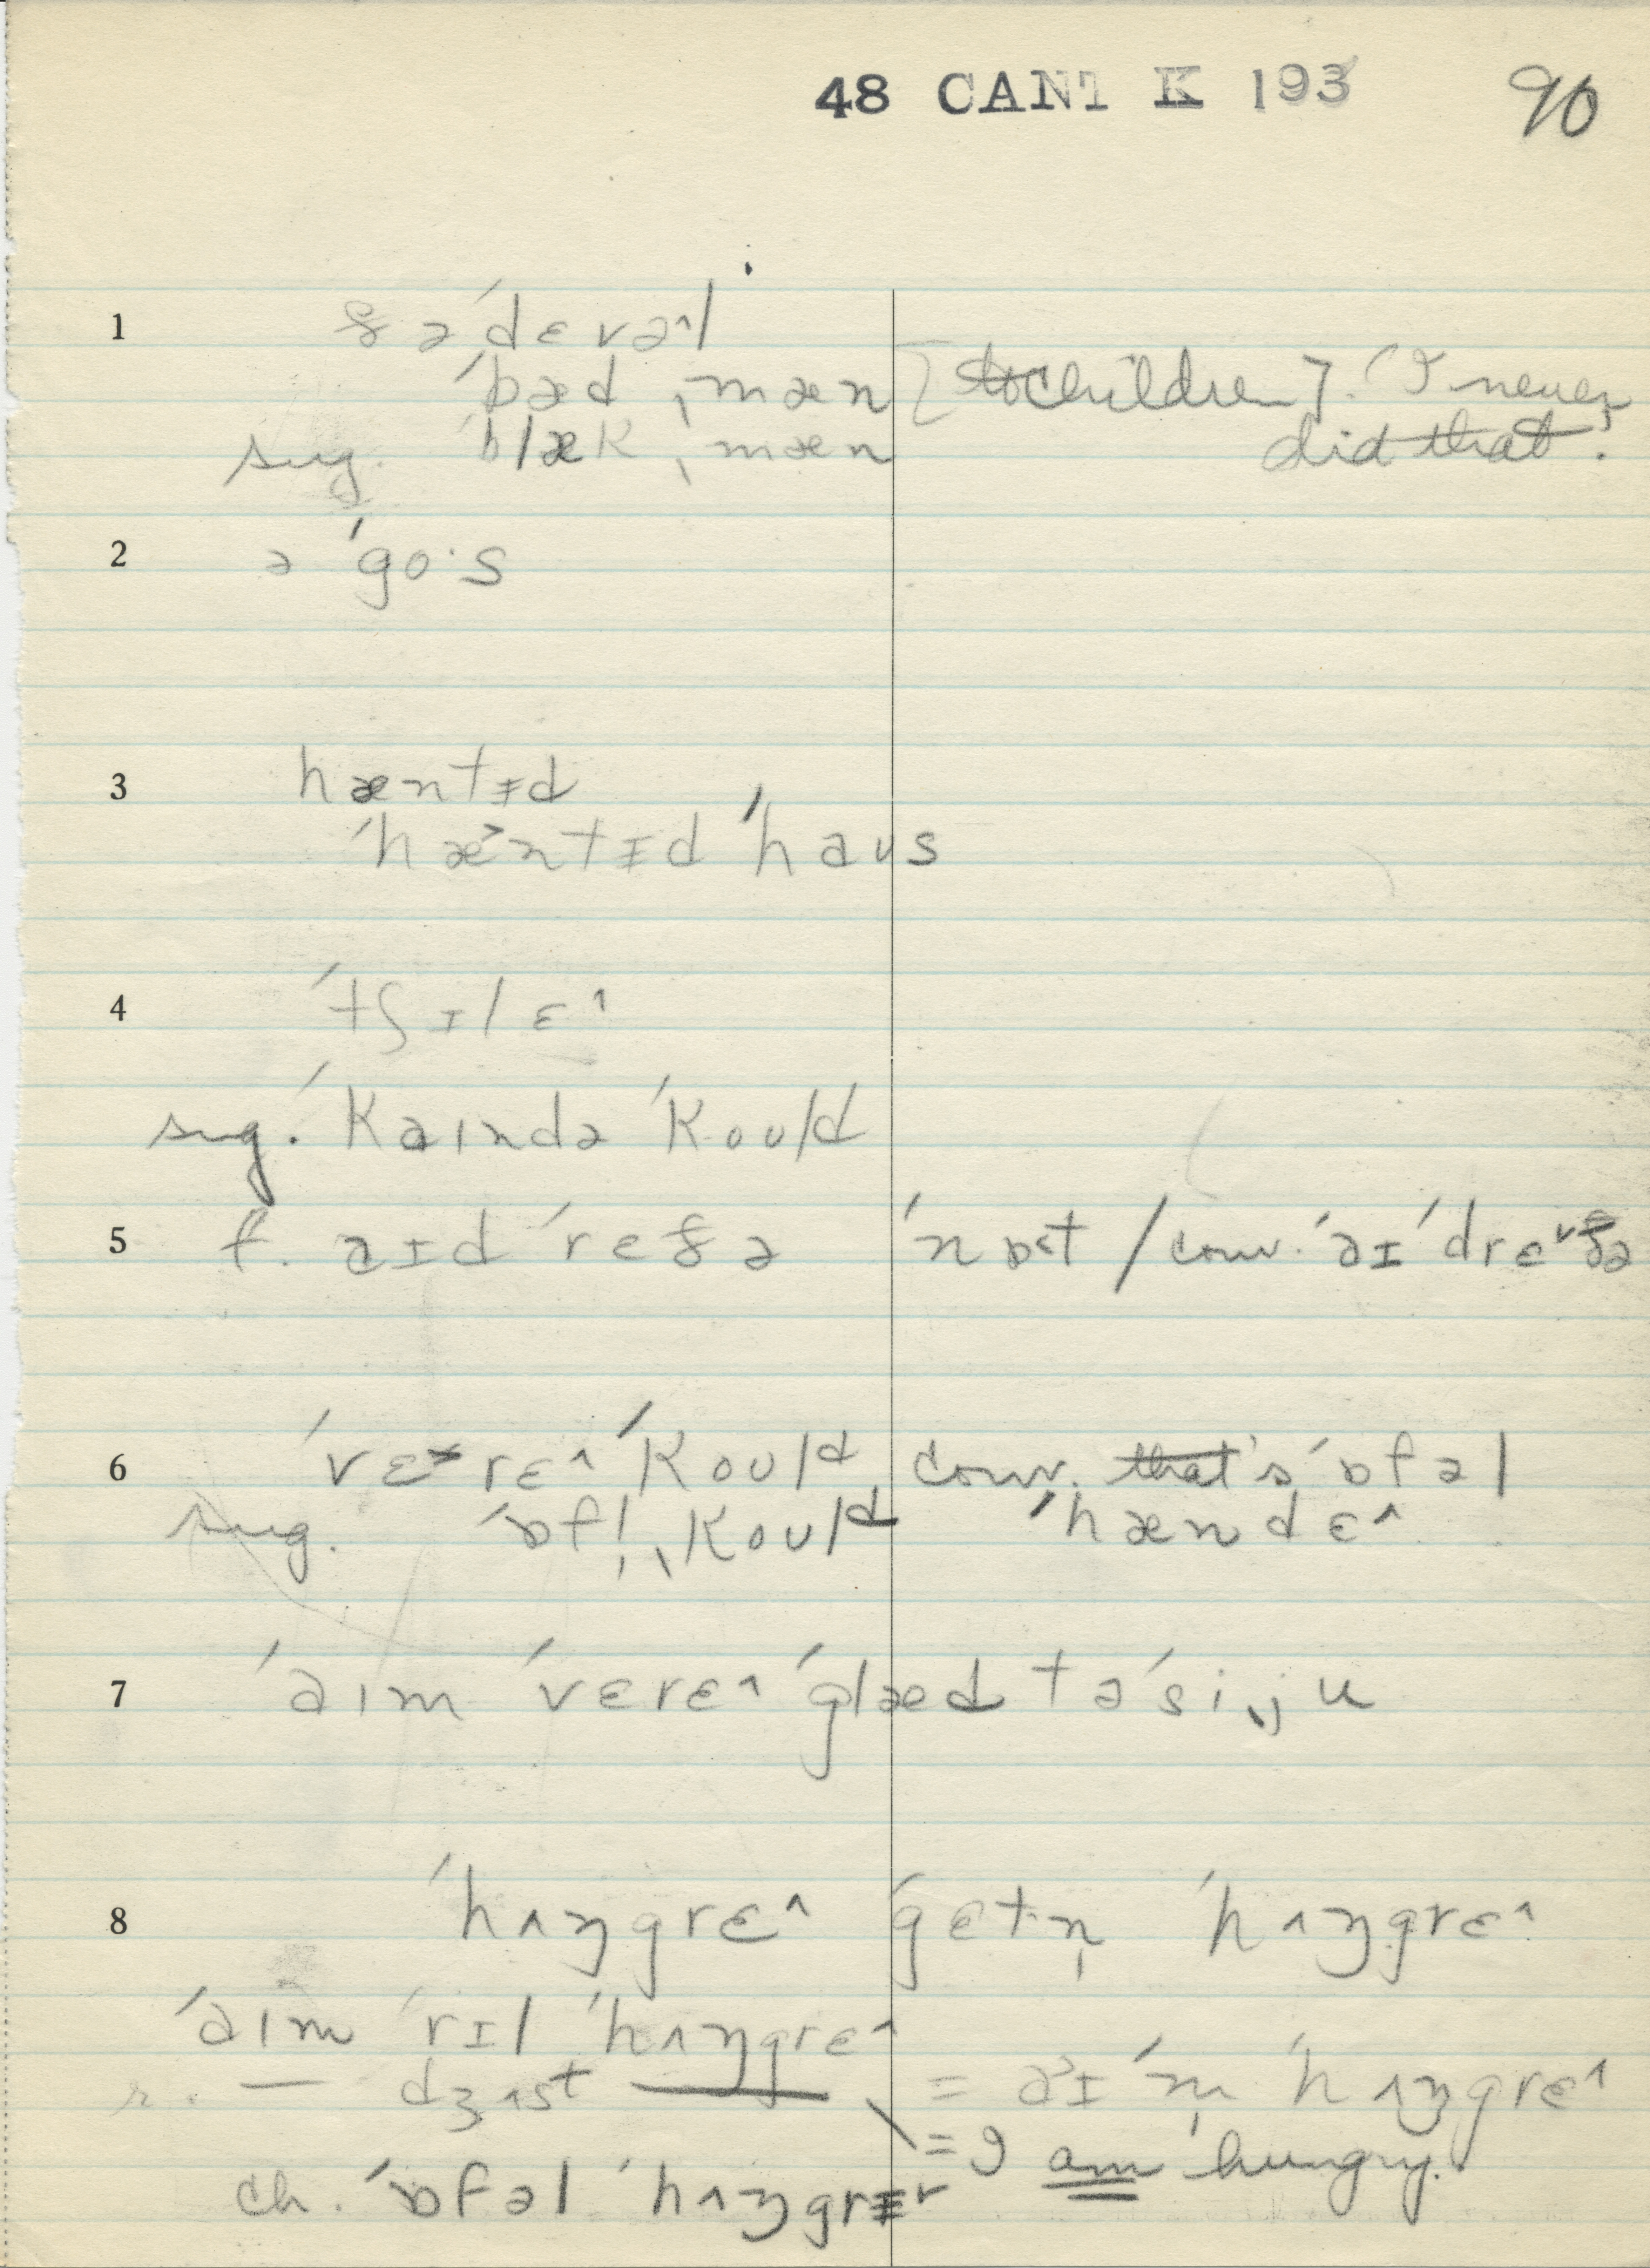 48 CANT K 193 90
1 ðə ˈdɛvəl
ˈbæd ˌmæn [to children]. "I never
sug. ˈblæk ˌmæn did that".
2 ə ˈgo·s
3 hæntɪd
ˈhæ˃ntɪd ˈhaʊs
4 ˈtʃɪlɛ^
sug. ˈkaɪndə ˈkoʊld
5 f. aɪd ˈreðə ˈnɒ˂t / conv. ˈaɪ ˈdrɛ˅ðə
6 ˈvɛrɛ^ ˈkoʊld conv. that's ˈɒfəl
sug. ˈɒfl̩ ˌkoʊld ˈhændɛ^
7 ˈaɪm ˈvɛrɛ^ ˈglæd tə ˈsiˌju
8 ˈhʌŋgrɛ^ ˈgɛtn̩ ˈhʌŋgrɛ^
ˈaɪm ˈrɪl ˈhʌŋgrɛ^
r. — dʒʌst — = aɪ ˈm̩ ˈhʌŋgrɛ^
= I am hungry.
ch. ˈɒfəl ˈhʌŋgrɪ˅